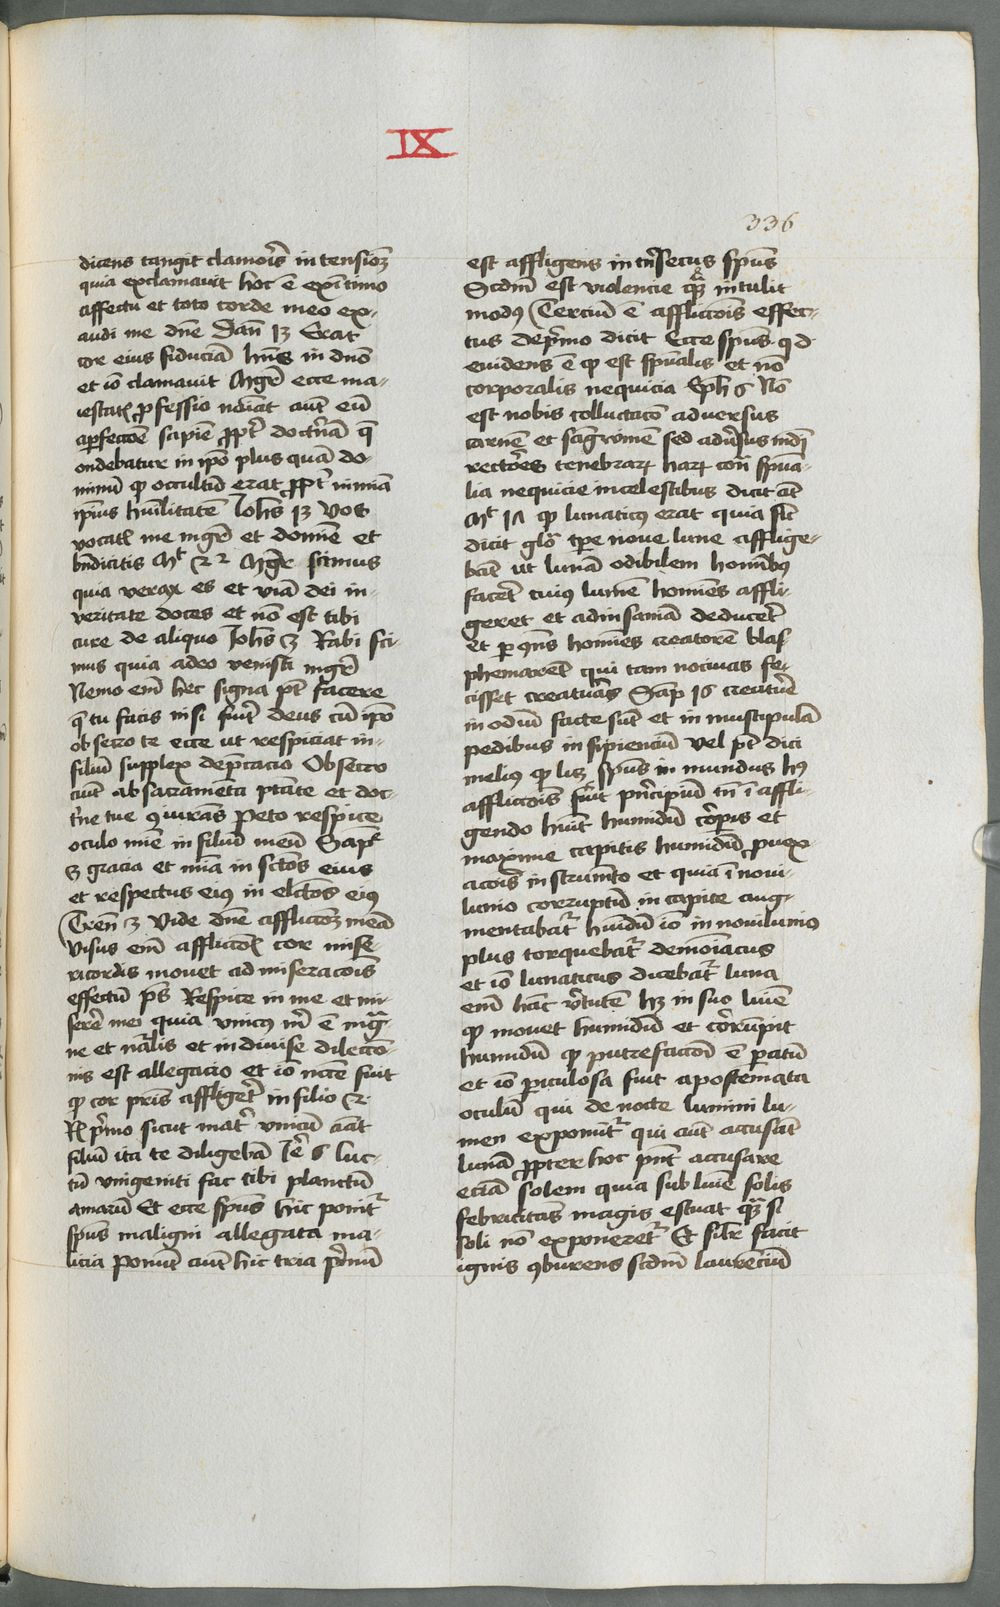 IX
336
dicens tangit clamor̄is in tensioꝫ
quia exclamauit hoc ē ex ītimo
affectu et toto corde meo ex-
audi me dn̄e Dan̄ 13 Erat
cor eius fiduciā hn̄s in dn̄o
et iō clamauit Mgr̄ ecce ma-
iestatꝭ ꝓfessio noīat aut̄ eū
a ꝑfectōe sapīe ꝓpt̄ doctⁱnā q̄
ondebatur in ip̄o plus quā do-
minū qꝫ occultū erat ꝓpt̄ nimiā
ip̄ius hūilitatē Joh̄s 13 Vos
vocatꝭ me mgr̄ et domīe et
bn̄dicitis Mᵗ 22 Mgr̄ scimus
quia verax es et viā dei in-
veritate doces et nō est tibi
cure de aliquo Joh̄s 3 Rabi sci-
mus quia a deo venisti mgr̄
Nemo em̄ hec signa pt̄ facere
q̄ tu facis nisi fūit deus cū ip̄o
obsecro te ecce ut respiciat in-
filiū supplex dep̄cacio Obsecro
aut̄ ab sacramēta ptāte et doc-
tⁱne tue ꝯiurās Peto respice
oculo mīe in filiū meū Sapᵉ
3 gracia et mīa in sctōs eius
et respectus eiꝰ in elctōs eiꝰ
Tren̄ 3 Vide dn̄e afflictōꝫ meā
Visus em̄ afflictōꝭ cor mise-
ricordis mouet ad miseracōis
effectū ps̄ Respice in me et mi-
serē mei quia vnicꝰ m̄ ē
ne et nālis et indiuise dilectō-
nis est allegacio et iō nc̄cē fuit
qꝫ cor pris̄ affligēt in filio 2
Rꝭ pⁱmo sicut matr̄ vnicū amat
filiū ita te diligebā Jēr 6 luc-
tū vnigeniti fac tibi planctū
amarū Et ecce spūs hic ponitᷣ
spūs maligni allegata ma-
licia Ponūt aut̄ hic tria pⁱmū
est affligens intrⁱsecus spūs
Scdm̄ est violencie qᷓꝫ intulit
modꝰ Terciū ē afflictōis effec-
tus de pⁱmo dicit Ecce spūs q d
euidens ē qꝫ est spūalis et nō
corporalis nequicia Eph̄ 6 Nō
est nobis colluctacō adversus
carnē et sāgwinē sed adūsus mdī
rectōres tenebrarꝝ harꝝ con̄ spūa-
lia nequicie in celestibus dicit aut̄
Mᵗ 17 qꝫ lunaticꝰ erat quia sīc
dicit glo᷈ tꝑe noue lune afflige-
bat̄ ut lunā odibilem hoīnibꝰ
facēt cuiꝰ lumē homīes affli-
geret et ad insaniā deducet̄
et ꝑ ꝯn̄s homīes creatorē blas-
phemarēt qui tam nociuas fe-
cisset creatuᷓs Sap̄ 14 creatuᷓe
in odiū facte sūt et in muscipulā
pedibus insipienciū Vel pt̄ dici
meliꝰ qꝫ licꝫ spūs inmundus hꝰ
afflictōis fūit pⁱncipiū tn̄ ī affli-
gendo hūit humidū cōrpis et
maxime capitis humidū ꝓ vex-
acōis instrumēto et quia ī noui-
lunio corruptū in capite aug-
mentabatᷣ hūidū iō in nouilunio
plus torquebatᷣ demōiacus
et iō lunaticus dicebatᷣ luna
em̄ hāc vⁱtutē hꝫ in suo lumīe
qꝫ mouet humidū et cōrrūpit
humidū qꝫ putrefactōi ē ꝑatū
et iō ꝑiculosa sunt apostemata
oculū qui de nocte lumini lu-
men exponūtᷣ qui aut̄ accusāt
lunā ꝓpter hoc pn̄t accusare
eciā solem quia sub lumīe solis
febricitās magis estuat qᷓꝫ si
soli nō exponeretᷣ Et silr̄ facit
ignis ꝯburens scdm̄ laurēciū